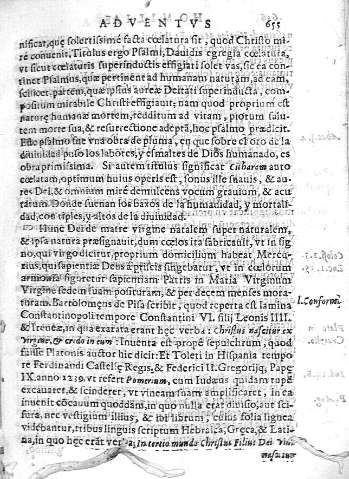 ADVENTVS 655
nificat, que solertissimè facta cœlatura sit, quod Christo mi-
rè conuenit. Titulus ergo Psalmi, Dauidis egregia cœlatura,
vt sicut cœlaturis superinductis effigiari solet vas, sic ea con-
tinet Psalmus, quæ pertinent ad humanam naturam, ad eam,
scilicet partem, quæ ipsius aureæ Deitati superinducta, com-
positum mirabile Christi effigiauit: nam quod proprium est
naturę humanæ mortem, redditum ad vitam, priorum salu-
tem morte sua, & resurrectione adeptā, hoc psalmo prædicit.
Este psalmo fue vna obra de pluma, en que sobre el oro de la
diuinidad puso los labores, y esmaltes de Dios humanado, es
obra primissima. Si autem titulus significat Citharem auto
cœlatam, optimum huius operis est, sonus ille suauis, & au-
res Dei, & omnium mirè demulcens vocum grauium, & acu-
tarum. Donde suenan los baxos de la humanidad, y mortali-
dad, con tiples, y altos de la diuinidad.
Hunc Derde matre virgine natalem super naturalem,
& ipsa natura præsignauit, dum cœlos ita fabricauit, vt in sig
no, qui virgo dicitur, proprium domicilium habeat Mercu-
rius, qui sapientiæ Deus à priscis fingebatur, vt in cœlorum
armonia figuretur sapientiam Patris in Maria Virginum
Virgine sedem suam posituram, & per decem menses mora-
turam. Bartolomęus de Pisa scribit, quod reperta est lamina
Constantinopoli tempore Constantini VI. filij Leonis IIII.
& Irenæ, in qua exarata erant hęc verba: Christus nascitur ex
Virgine, & credo in eum: Inuenta est propè sepulchrum, quod
fuisse Platonis auctor hic dicit: Et Toleti in Hispania tempo
re Ferdinandi Castellę Regis, & Federici II. Gregorijq; Papę
IX. anno 1239. vt refert Pomerum, cum Iudæus quidam rupē
excauaret, & scinderet, vt vineam suam amplificaret, in ea
inuenit cōcauum quoddam, in quo nulla erat diuisio, aut scis-
sura, nec vestigium illius, & ibi librum, cuius folia lignea
videbantur, tribus linguis scriptum Hebraica, Græca, & Lati-
na, in quo hęc erāt verba, In tertio mundo Christus Filius Dei Vir-
nascetur
l. Conformi.